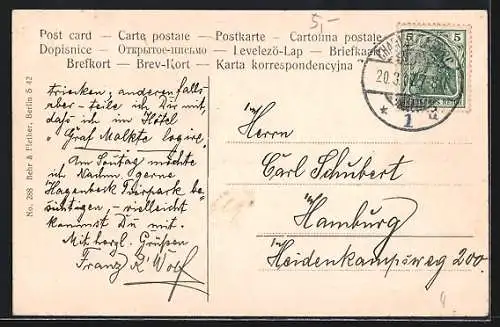 5,-
Post card — Carte postale — Postkarte — Cartolina postale
Dopisnice — Открытое-письмо — Levelező-Lap — Briefkaart
Brefkort — Brev-Kort — Karta korrespondencyjna
5 5
20.3
* 1 d
No. 288 Behr & Flether, Berlin S 42
trinken; anderenfalls
aber - teile ich Dir mit,
daß ich im Hôtel
"Graf Moltke" logire.
Am Sonntag möchte
ich Nachm. gerne
Hagenbeck Tierpark be-
sichtigen, - vielleicht
kommst Du mit.
Mit herzl. Grüßen
Franz R. Wolf
Herrn
Carl Schubert
in Hamburg
Heidenkampsweg 200.